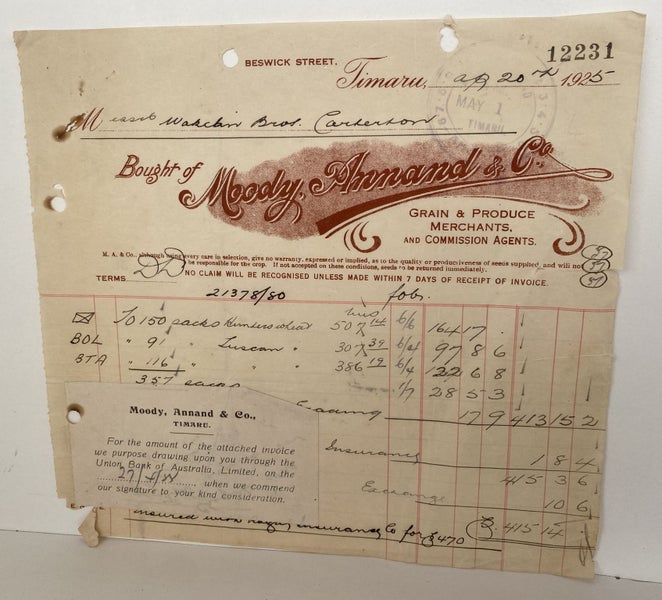 BESWICK STREET.
12231
Timaru, 20th 1925
MAY 1
TIMARU
Messrs Wakelin Bros. Carterton
Bought of Moody, Annand & Co.,
GRAIN & PRODUCE
MERCHANTS,
AND COMMISSION AGENTS.
M. A. & Co., although using every care in selection, give no warranty, expressed or implied, as to the quality or productiveness of seeds supplied, and will not
be responsible for the crop. If not accepted on these conditions, seeds to be returned immediately.
TERMS DD NO CLAIM WILL BE RECOGNISED UNLESS MADE WITHIN 7 DAYS OF RECEIPT OF INVOICE.
21378/80 fob.
bus
To 150 sacks Hunters wheat 507 14 6/6 164 17 .
BOL " 91 " Tuscan " 307 39 6/4 97 8 6
BTA " 116 " " " 386 19 6/4 122 6 8
357 sacks 1/7 28 5 3
17 9 413 15 2
Insurance 1 8 4
415 3 6
Exchange 10 6
£ 415 14
Insured with Insurance Co for £470
Moody, Annand & Co.,
TIMARU.
For the amount of the attached invoice
we purpose drawing upon you through the
Union Bank of Australia, Limited, on the
27/4/25 when we commend
our signature to your kind consideration.